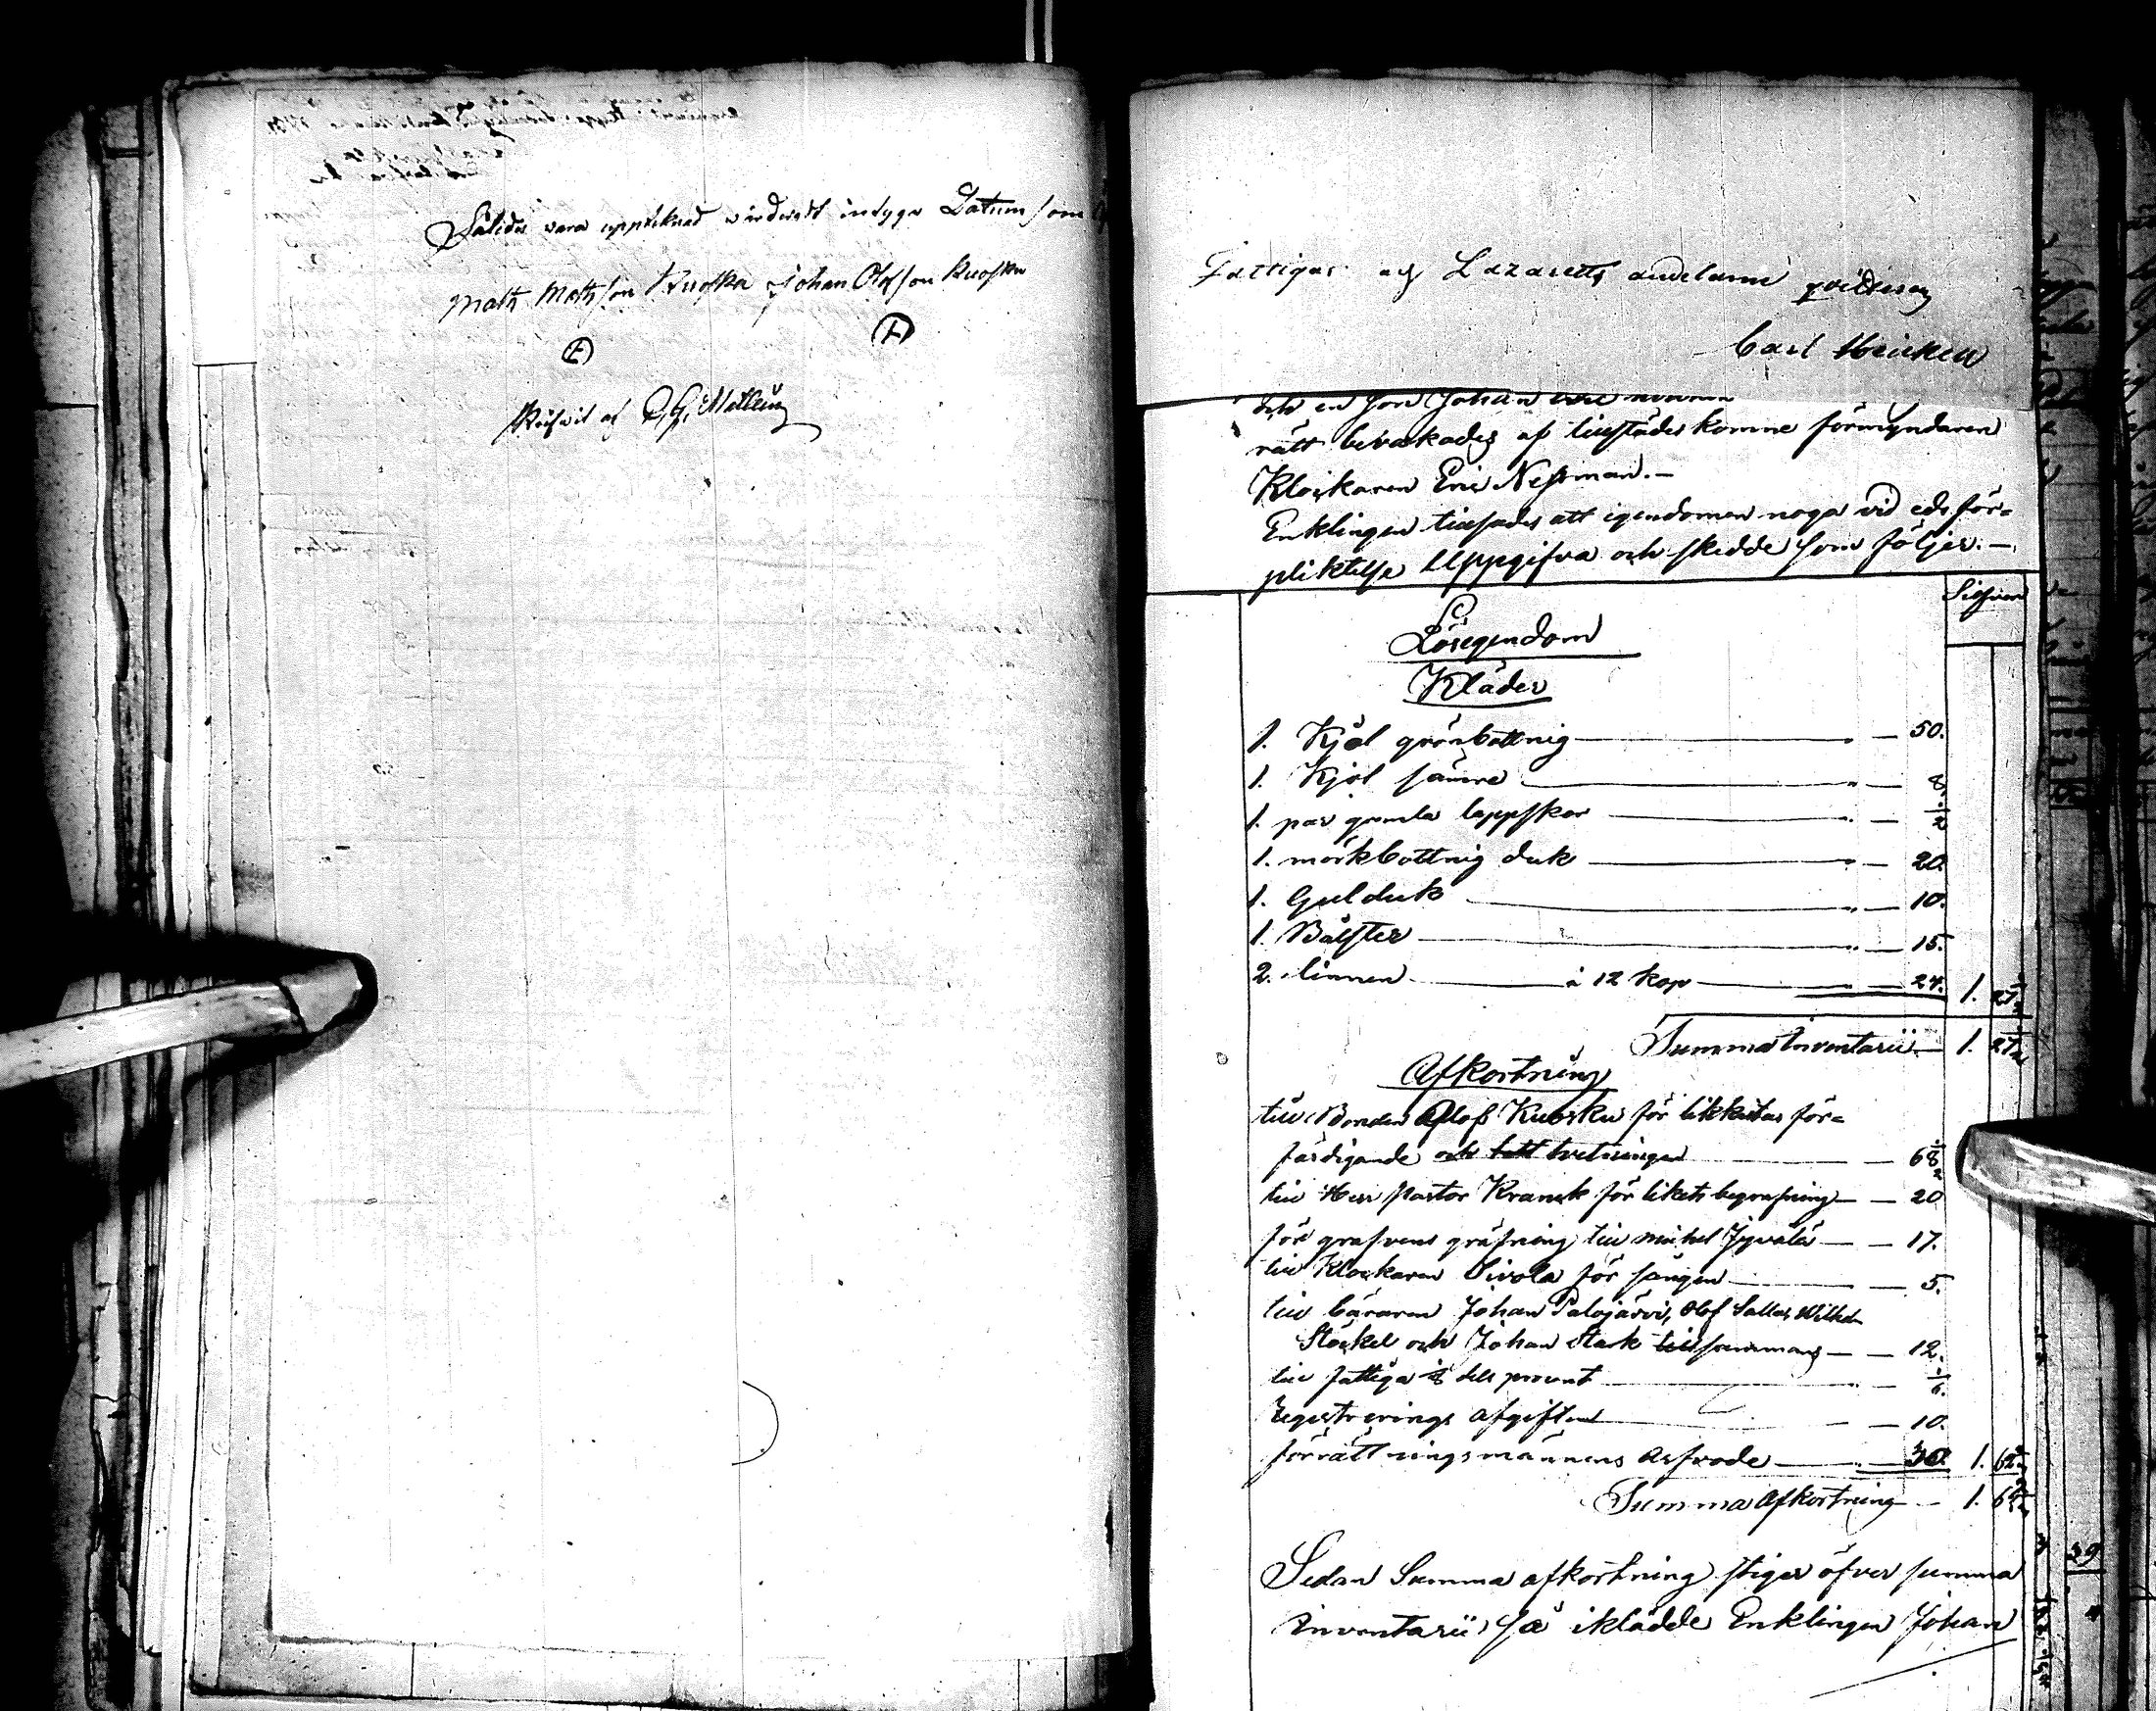 Således vara upptecknad och värderadt intyga Datum som
Mats Matsson Kuoska Johan Olsson Kuoska
Skrifvit af
Fattigas och Lazaretts andelarne qvitteras
Carl Heicken
och en son Johan
rätt bevakades af tillstädes komne förmyndaren
Klockaren Eric Nessman. -
Enklingen tillsades att egendomen noga vid eds för=
pliktelse Uppgifva och skedde som följer. -
Silfver
Lösegendom
Kläder
1. Kjol grönbottnig " - 50.
1. Kjol sämre " - 8.
1. par gamla lappskor " - 1/2
1. mörkbottnig duk " - 20.
1. Gul duk " - 10.
1. Bålster " - 15.
2. linnen à 12 kop " - 24. 1. 27 1/2
Summa Inventarii - 1. 27 1/2
Afkortning
till Bonden Olof Kuoska för likkistas för=
färdigande och - 68 1/2
till Herr Pastor Kranck för likets begrafning - 20
för grafvens gräfning till Michel Jyvälä - 17.
till Klockaren Sivola för sången - 5.
till bäraren Johan Palojärvi, Olof Sallas, Wilhelm
Stöckel och Johan Stark tillsammans - 12.
till fattiga 1/8 dels procent " -
Registrerings afgiften - 10.
förrättningsmännens arfvode " - 30. 1. 62
Summa Afkortning - 1. 62
Sedan Summa afkortning stiger öfver summa
inventarii, så iklädde Enklingen Johan
39